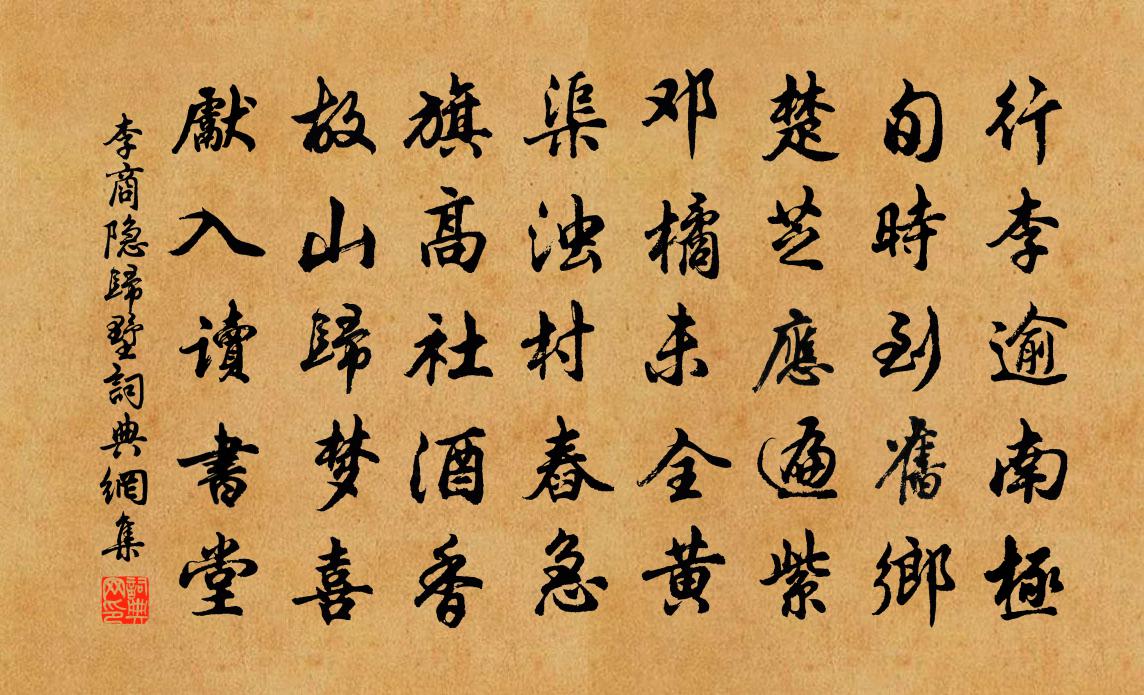 行李逾南極
旬時到舊鄉
楚芝應遍紫
邓橘未全黄
渠浊村舂急
旗高社酒香
故山歸梦喜
獻入讀書堂
李商隐歸墅詞典網集
詞典
网印